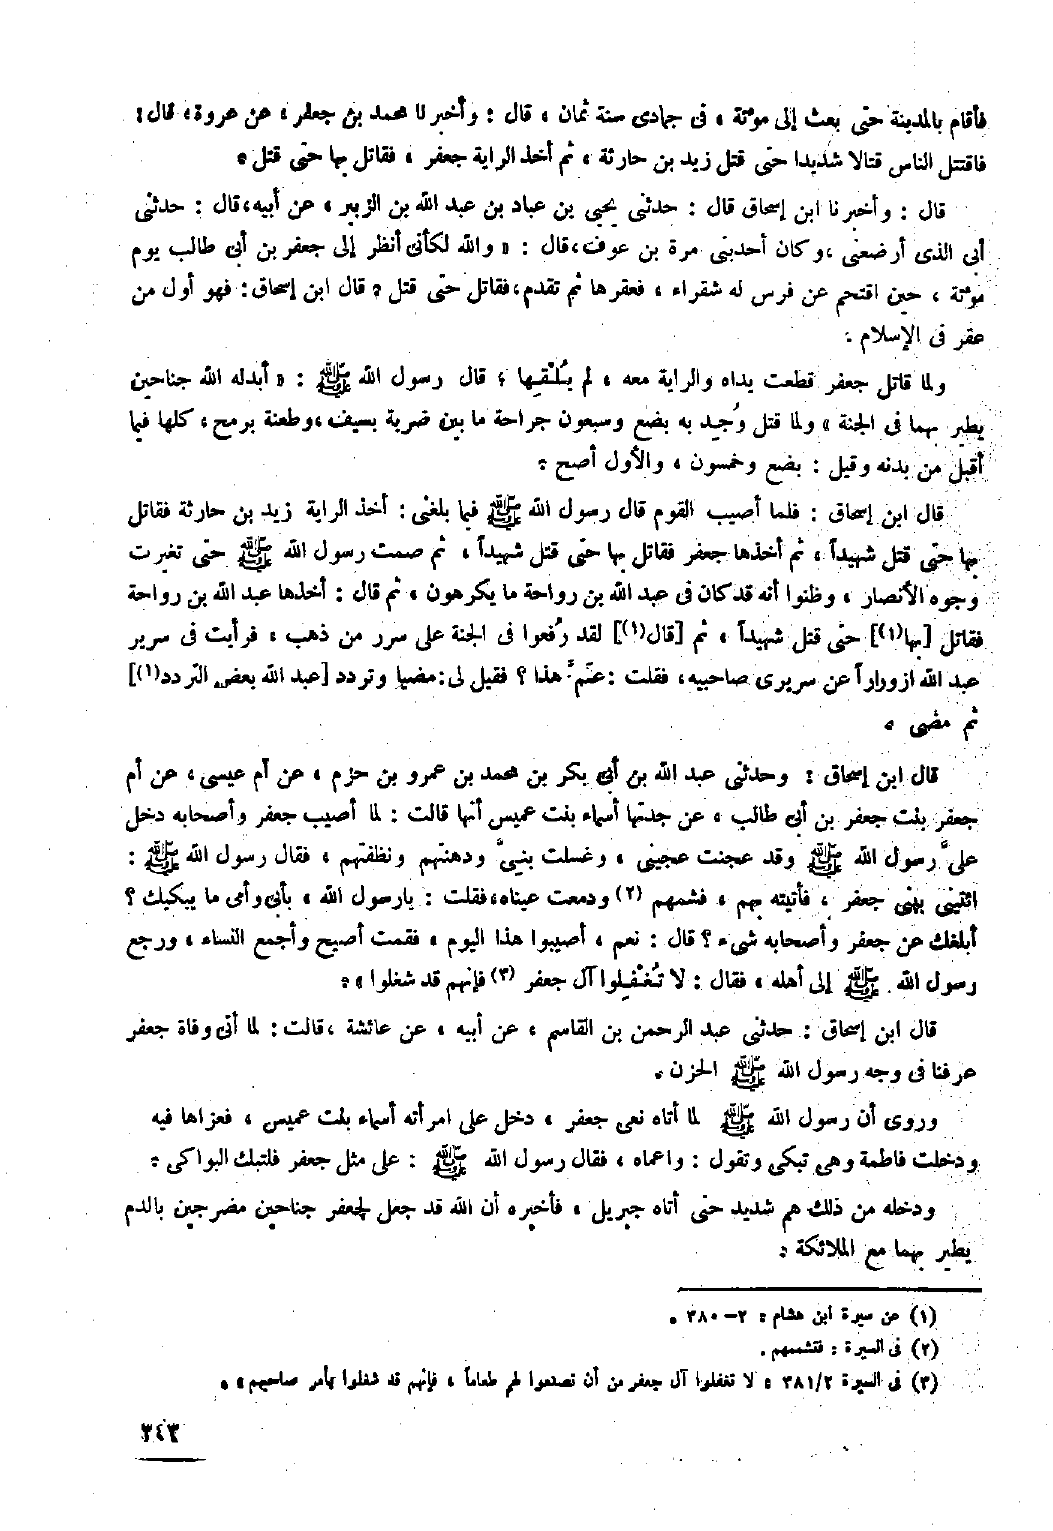 فأقام بالمدينة حتى بعث إلى مؤتة ، فى جمادى سنة ثمان ، قال : وأخبرنا محمد بن جعفر ، عن عروة ، قال :
فاقتتل الناس قتالا شديدا حتى قتل زيد بن حارثة ، ثم أخذ الراية جعفر ، فقاتل بها حتى قتل .
قال : وأخبرنا ابن إسحاق قال : حدثنى يحيى بن عباد بن عبد الله بن الزبير ، عن أبيه ، قال : حدثنى
أبى الذى أرضعنى ، وكان أحد بنى مرة بن عوف ، قال : « والله لكأنى أنظر إلى جعفر بن أبى طالب يوم
مؤتة ، حين اقتحم عن فرس له شقراء ، فعقرها ثم تقدم ، فقاتل حتى قتل . قال ابن إسحاق : فهو أول من
عقر فى الإسلام .
ولما قاتل جعفر قطعت يداه والراية معه ، لم يُلْقِها ؛ قال رسول الله ﷺ : « أبدله الله جناحين
يطير بهما فى الجنة » ولما قتل وُجِد به بضع وسبعون جراحة ما بين ضربة بسيف ، وطعنة برمح ، كلها فيما
أقبل من بدنه وقيل : بضع وخمسون ، والأول أصح .
قال ابن إسحاق : فلما أصيب القوم قال رسول الله ﷺ فيما بلغنى : أخذ الراية زيد بن حارثة فقاتل
بها حتى قتل شهيداً ، ثم أخذها جعفر فقاتل بها حتى قتل شهيداً ، ثم صمت رسول الله ﷺ حتى تغيرت
وجوه الأنصار ، وظنوا أنه قد كان فى عبد الله بن رواحة ما يكرهون ، ثم قال : أخذها عبد الله بن رواحة
فقاتل [بها(١)] حتى قتل شهيداً ، ثم [قال(١)] لقد رُفعوا فى الجنة على سرر من ذهب ، فرأيت فى سرير
عبد الله ازوراراً عن سريرى صاحبيه ، فقلت : عَمَّ هذا ؟ فقيل لى : مضيا وتردد [عبد الله بعض التردد(١)]
ثم مضى .
قال ابن إسحاق : وحدثنى عبد الله بن أبى بكر بن محمد بن عمرو بن حزم ، عن أم عيسى ، عن أم
جعفر بنت جعفر بن أبى طالب ، عن جدتها أسماء بنت عميس أنها قالت : لما أصيب جعفر وأصحابه دخل
علىَّ رسول الله ﷺ وقد عجنت عجينى ، وغسلت بنىَّ ودهنتهم ونظفتهم ، فقال رسول الله ﷺ :
ائتينى ببنى جعفر ، فأتيته بهم ، فشمهم (٢) ودمعت عيناه ، فقلت : يارسول الله ، بأبى وأمى ما يبكيك ؟
أبلغك عن جعفر وأصحابه شىء ؟ قال : نعم ، أصيبوا هذا اليوم ، فقمت أصيح وأجمع النساء ، ورجع
رسول الله ﷺ إلى أهله ، فقال : لا تُغْفِلوا آل جعفر (٣) فإنهم قد شغلوا » .
قال ابن إسحاق : حدثنى عبد الرحمن بن القاسم ، عن أبيه ، عن عائشة ، قالت : لما أتى وفاة جعفر
عرفنا فى وجه رسول الله ﷺ الحزن .
وروى أن رسول الله ﷺ لما أتاه نعى جعفر ، دخل على امرأته أسماء بنت عميس ، فعزاها فيه
ودخلت فاطمة وهى تبكى وتقول : واعماه ، فقال رسول الله ﷺ : على مثل جعفر فلتبك البواكى .
ودخله من ذلك هم شديد حتى أتاه جبريل ، فأخبره أن الله قد جعل لجعفر جناحين مضرجين بالدم
يطير بهما مع الملائكة .
(١) عن سيرة ابن هشام : ٢ – ٣٨٠ .
(٢) فى السيرة : فتشممهم .
(٣) فى السيرة ٣٨١/٢ « لا تغفلوا آل جعفر من أن تصنعوا لهم طعاماً ، فإنهم قد شغلوا بأمر صاحبهم » .
٣٤٣